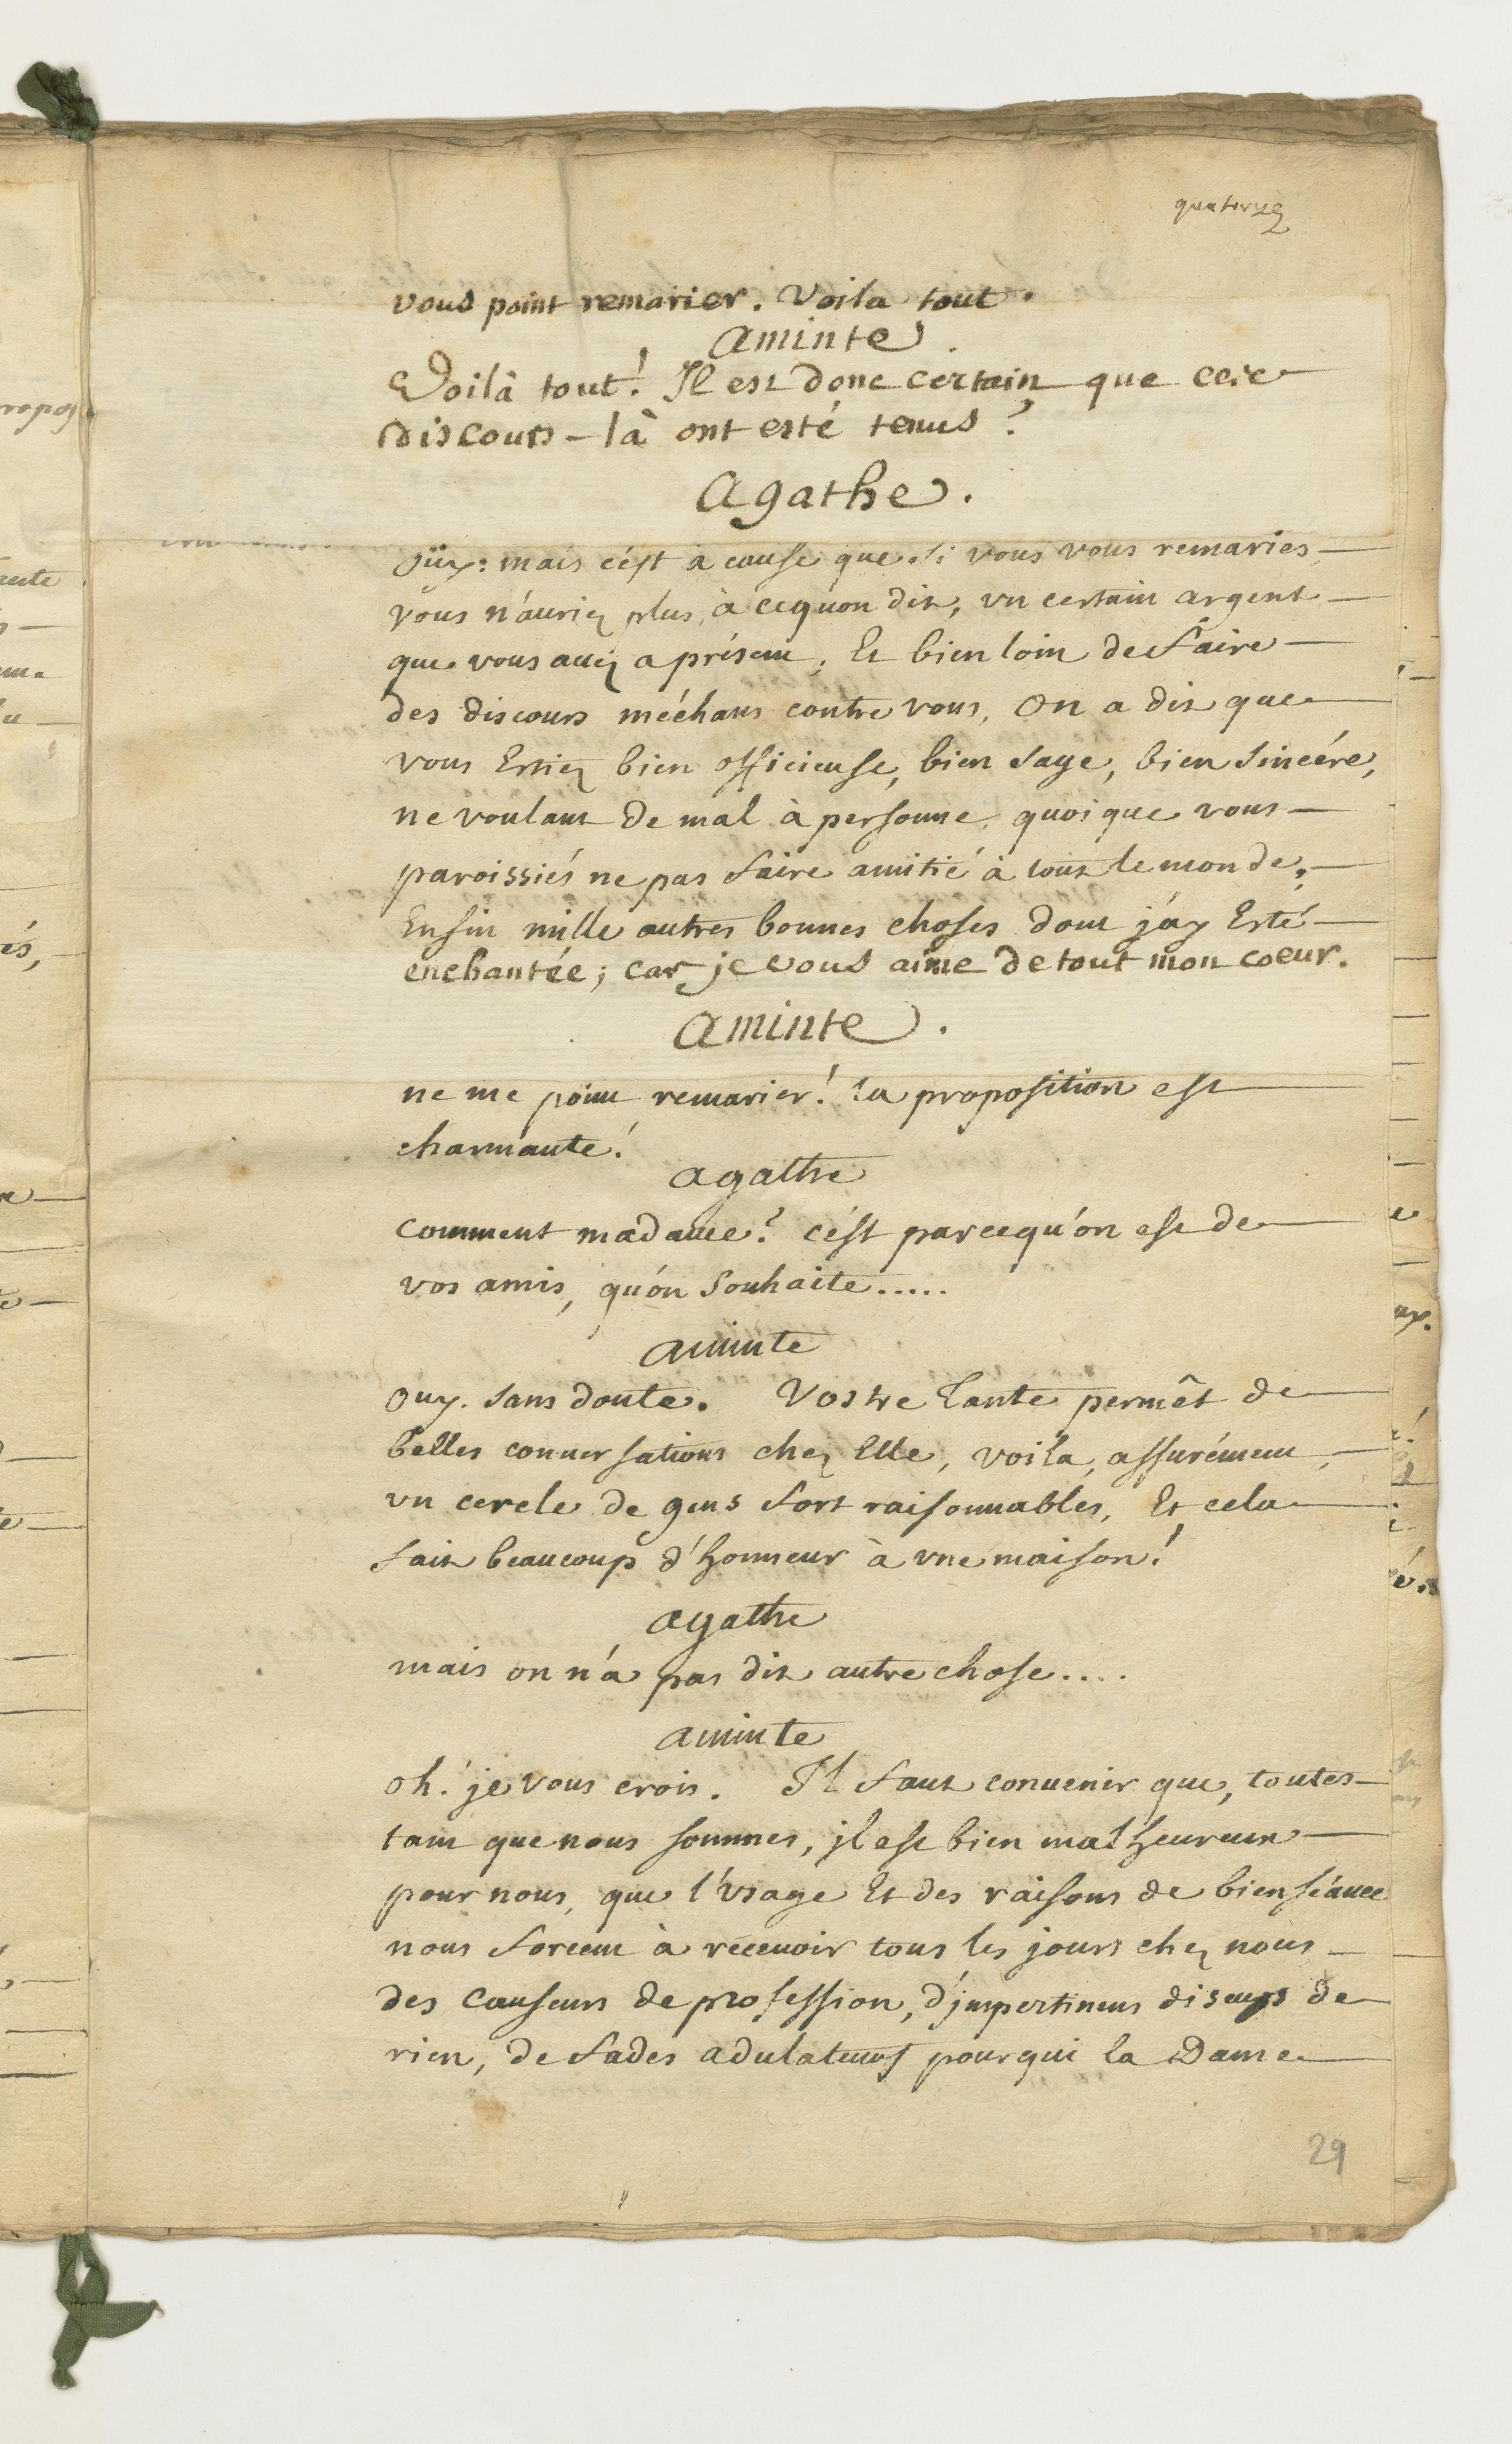 quatorze
vous point remarier. Voila tout.
aminte.
Voilà tout! Il est donc certain que ces
discours-là ont esté tenus?
Agathe.
Oüy: mais c'est à cause que si vous vous remariés,
vous n'auriez plus, à cequ'on dit, vn certain argent
que vous auez a présent. Et bien loin de faire
des discours méchans contre vous, On a dit que
vous Estiez bien officieuse, bien sage, bien sincére,
ne voulant de mal à personne, quoique vous
paroissiés ne pas faire amitié à tout le monde,
Enfin mille autres bonnes choses dont j'ay Esté
enchantée; car je vous aime de tout mon coeur.
aminte.
ne me point remarier! la proposition est
charmante!
agathe
comment madame? c'est parcequ'on est de
vos amis, qu'on souhaite.....
aminte
ouy. sans doute. Vostre Tante permêt de
belles conuersations chez Elle, voila, assurément,
vn cercle de gens fort raisonnables, Et cela
fait beaucoup d'honneur à vne maison!
agathe
mais on n'a pas dit autre chose....
aminte
oh! je vous crois. Il faut conuenir que, toutes
tant que nous sommes, jl est bien malheureux
pour nous, que l'vsage Et des raisons de bienséance
nous forcent à receuoir tous les jours chez nous
des causeurs de profession, d'jmpertinens diseurs de
rien, de fades adulateurs pour qui la Dame
29